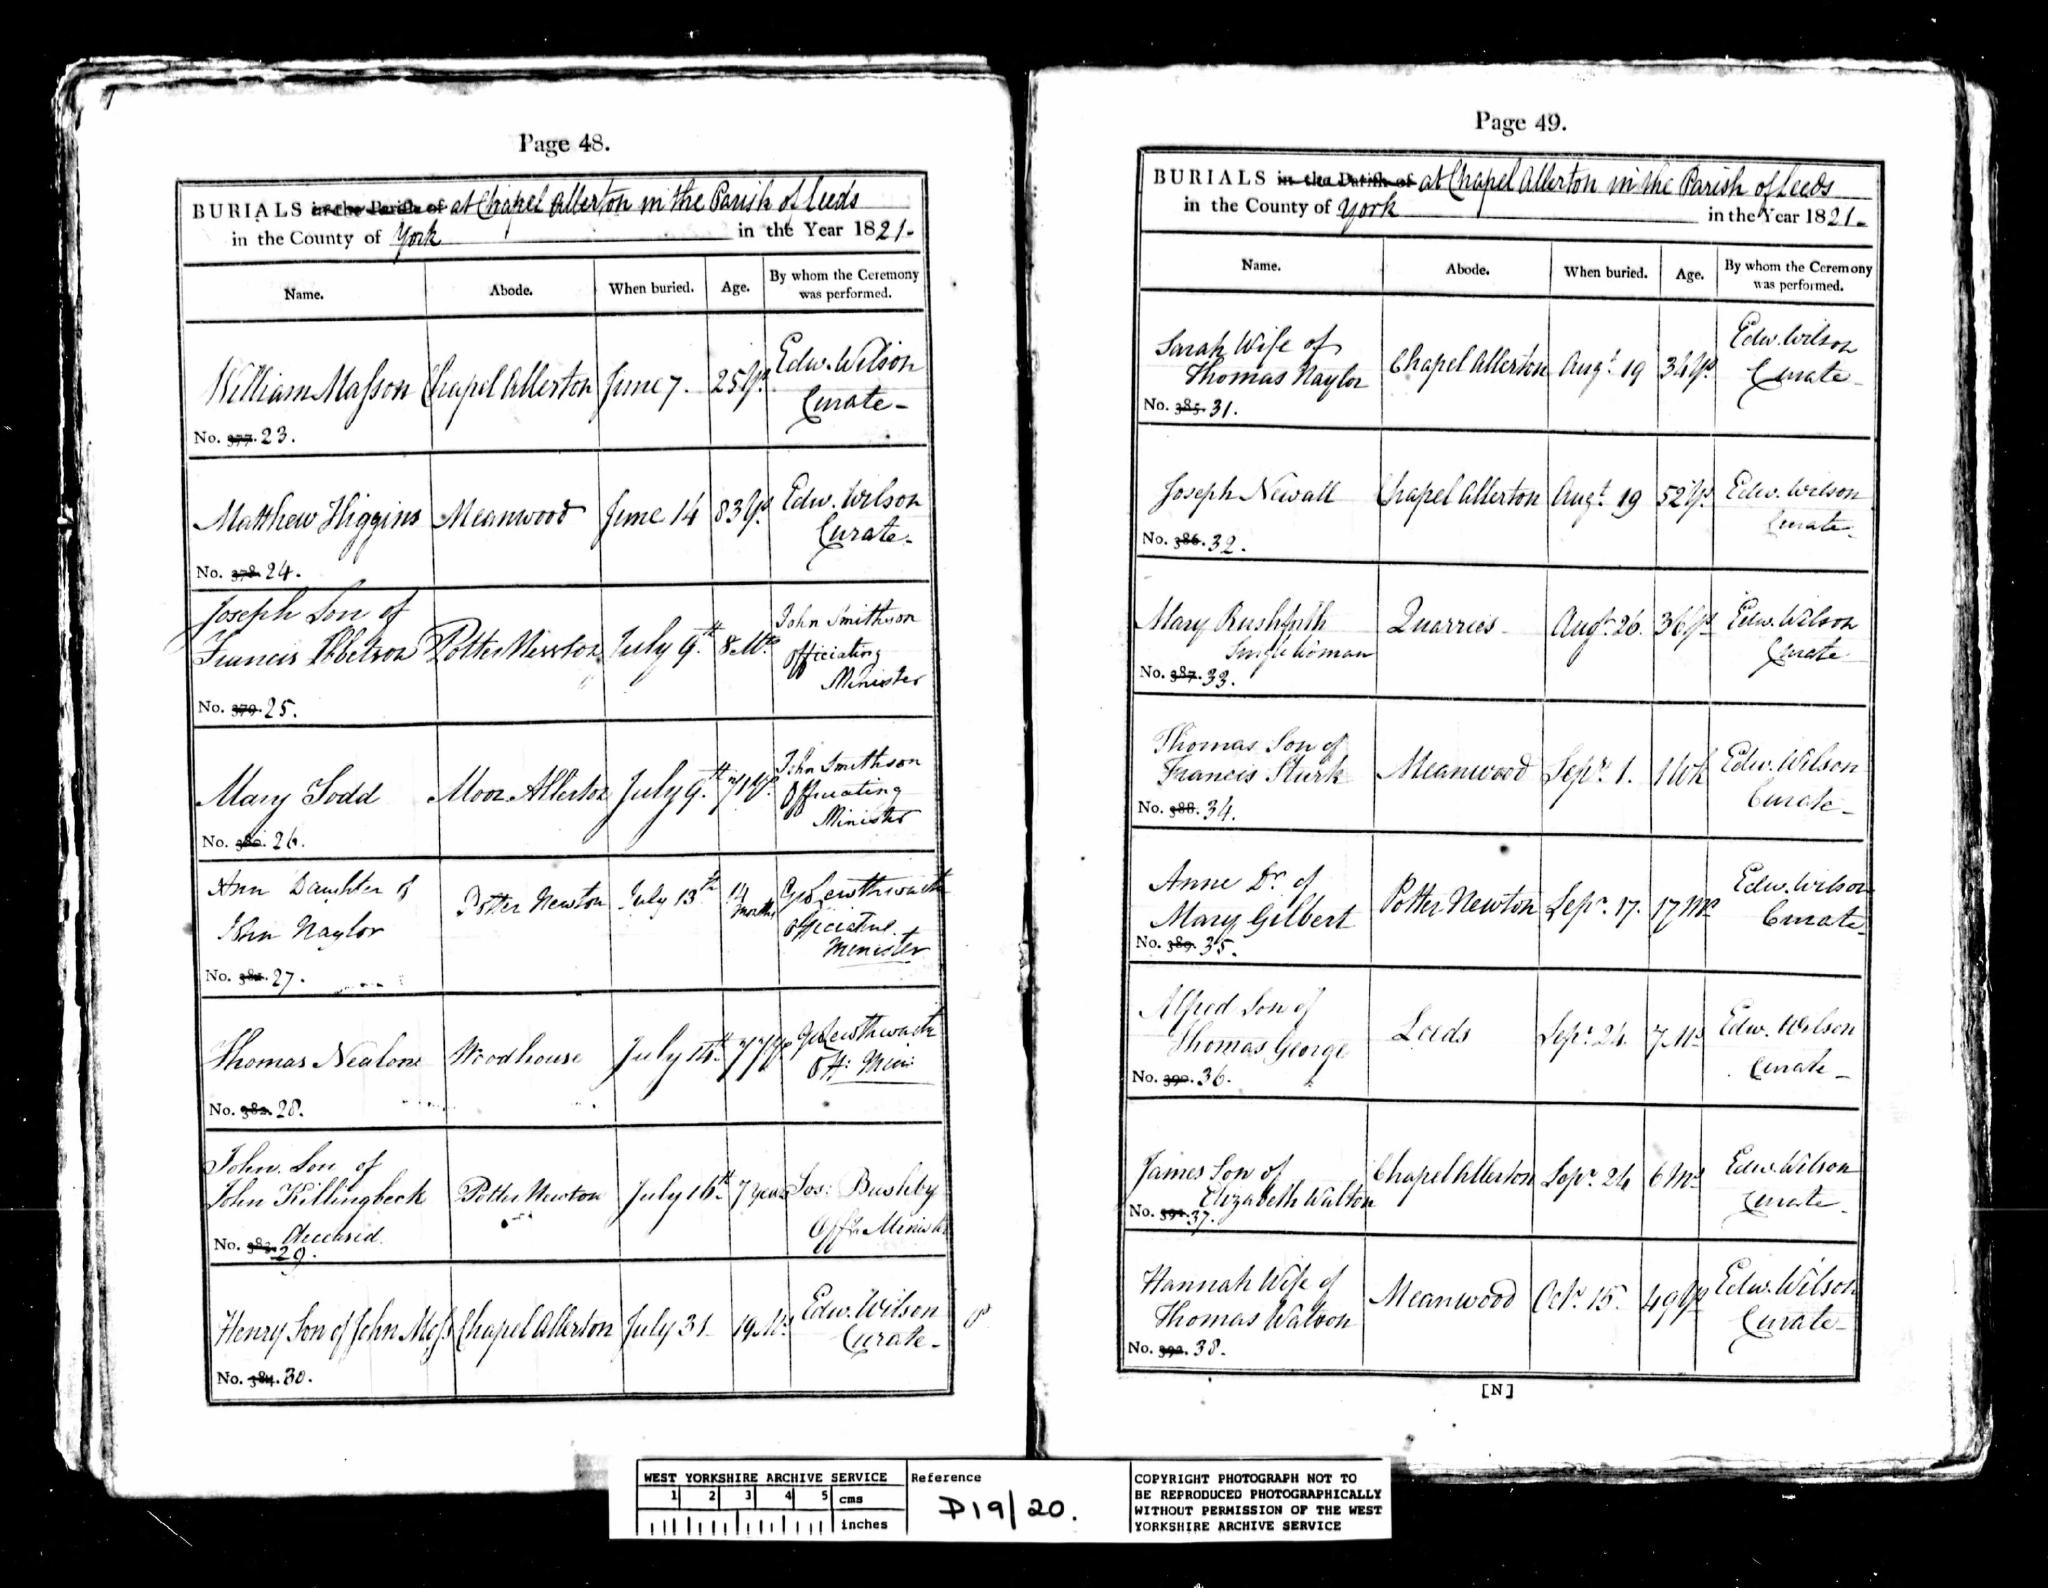 Page 48.
BURIALS in the Parish of at Chapel Allerton in the Parish of Leeds
in the County of York in the Year 1821-
Name. Abode. When buried. Age. By whom the Ceremony was performed.
William Maſson Chapel Allerton June 7. 25 Yrs Edw. Wilson
Curate-
No. 377. 23.
Matthew Higgins Meanwood June 14 83 Yrs Edw. Wilson
Curate-
No. 378. 24.
Joseph Son of
Francis Ibbetson Potter Newton July 9th 8 Mos John Smithson
Officiating
Minister
No. 379. 25.
Mary Todd Moor Allerton July 9th 71 Yrs John Smithson
Officiating
Minister
No. 380. 26.
Ann Daughter of
John Naylor Potter Newton July 13th 14 months Geo Lewthwaite
Officiating
Minister
No. 381. 27.
Thomas Woodhouse July 14th 77 Yrs Geo Lewthwaite
Off: Min:
No. 382. 28.
John Son of
John Killingbeck Potter Newton July 16th 7 Years Jos: Bushby
deceased Offg Minister
No. 383. 29.
Henry Son of John Moſs Chapel Allerton July 31 19 Ms Edw. Wilson
Curate-
No. 384. 30.
Page 49.
BURIALS in the Parish of at Chapel Allerton in the Parish of Leeds
in the County of York in the Year 1821-
Name. Abode. When buried. Age. By whom the Ceremony was performed.
Sarah Wife of
Thomas Naylor Chapel Allerton Augt. 19 34 Yrs Edw. Wilson
Curate-
No. 385. 31.
Joseph Newall Chapel Allerton Augt. 19 52 Yrs Edw. Wilson
Curate-
No. 386. 32.
Mary Rushforth Quarries Augt. 26. 36 Yrs Edw. Wilson
Single Woman Curate
No. 387. 33.
Thomas Son of
Francis Sturk Meanwood Sepr. 1. 1 Wk Edw. Wilson
Curate-
No. 388. 34.
Anne Dr. of
Mary Gilbert Potter Newton Sepr. 17. 17 Ms Edw. Wilson
Curate-
No. 389. 35.
Alfred Son of
Thomas George Leeds Sepr. 24. 7 Ms Edw. Wilson
Curate-
No. 390. 36.
James Son of
Elizabeth Walton Chapel Allerton Sepr. 24 6 Ms Edw. Wilson
Curate-
No. 391. 37.
Hannah Wife of
Thomas Watson Meanwood Octr. 15. 49 Yrs Edw. Wilson
Curate-
No. 392. 38.
[N]
WEST YORKSHIRE ARCHIVE SERVICE
1 2 3 4 5 cms
inches
Reference
D19/20.
COPYRIGHT PHOTOGRAPH NOT TO
BE REPRODUCED PHOTOGRAPHICALLY
WITHOUT PERMISSION OF THE WEST
YORKSHIRE ARCHIVE SERVICE